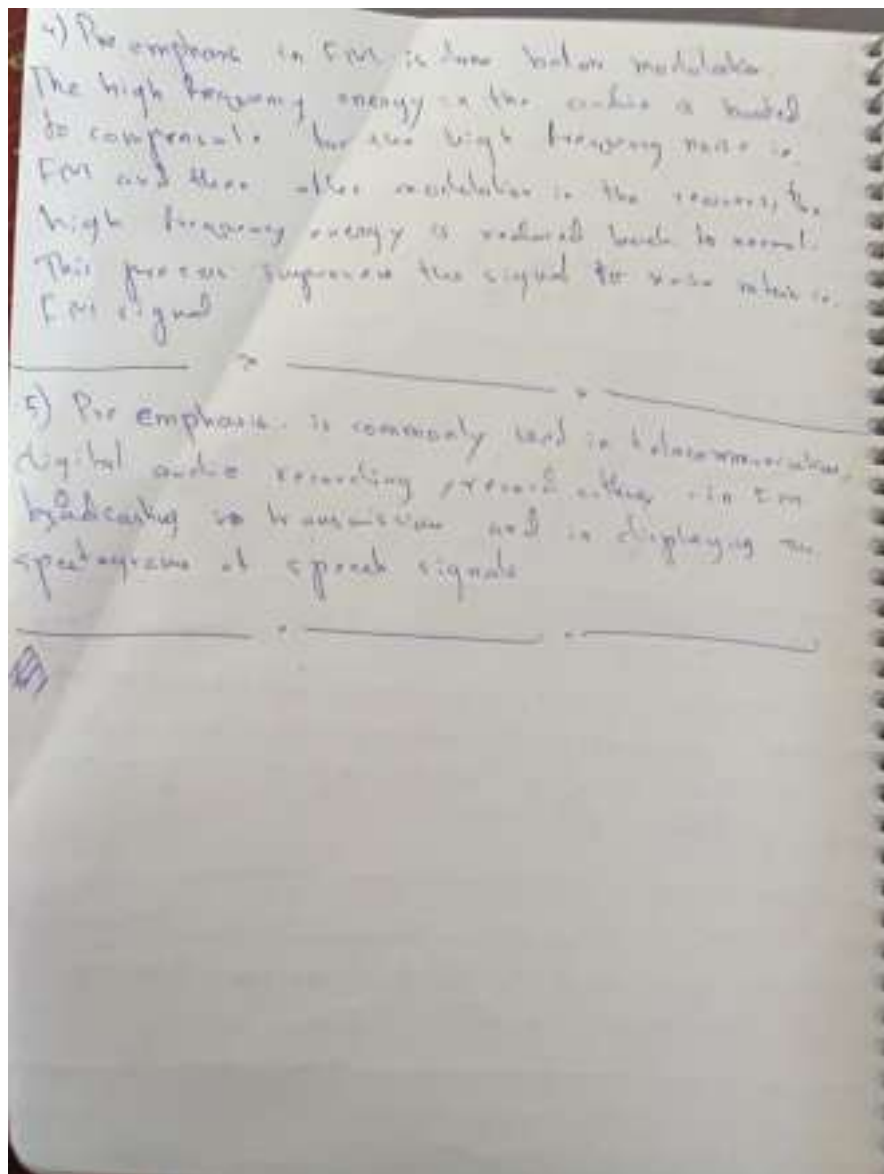 4) Pre emphasis in FM is done before modulation.
The high frequency energy in the audio is boosted
to compensate for the high frequency noise in
FM and then after modulation in the receiver, the
high frequency energy is reduced back to normal.
This process improves the signal to noise ratio in
FM signal
5) Pre emphasis is commonly used in telecommunication,
digital audio recording, record cutting, in FM
broadcasting transmission and in displaying the
spectrograms of speech signals